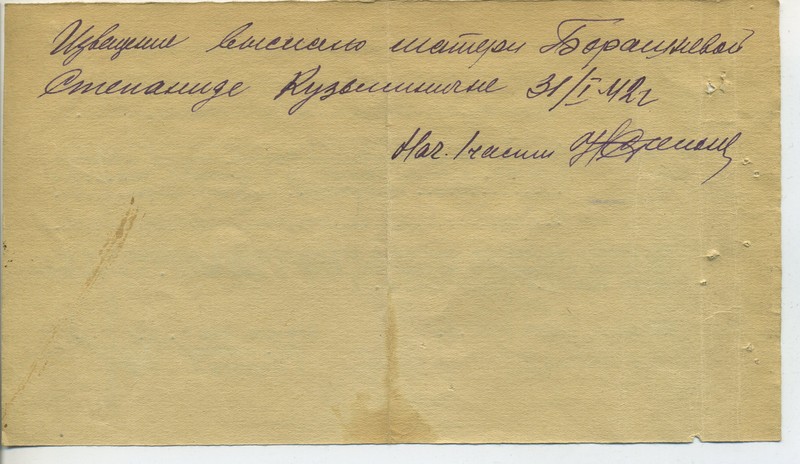 Извещение выслано материБоращневой
Степаниде Кузьминичне 31/I 42 г
Нач. 1 части